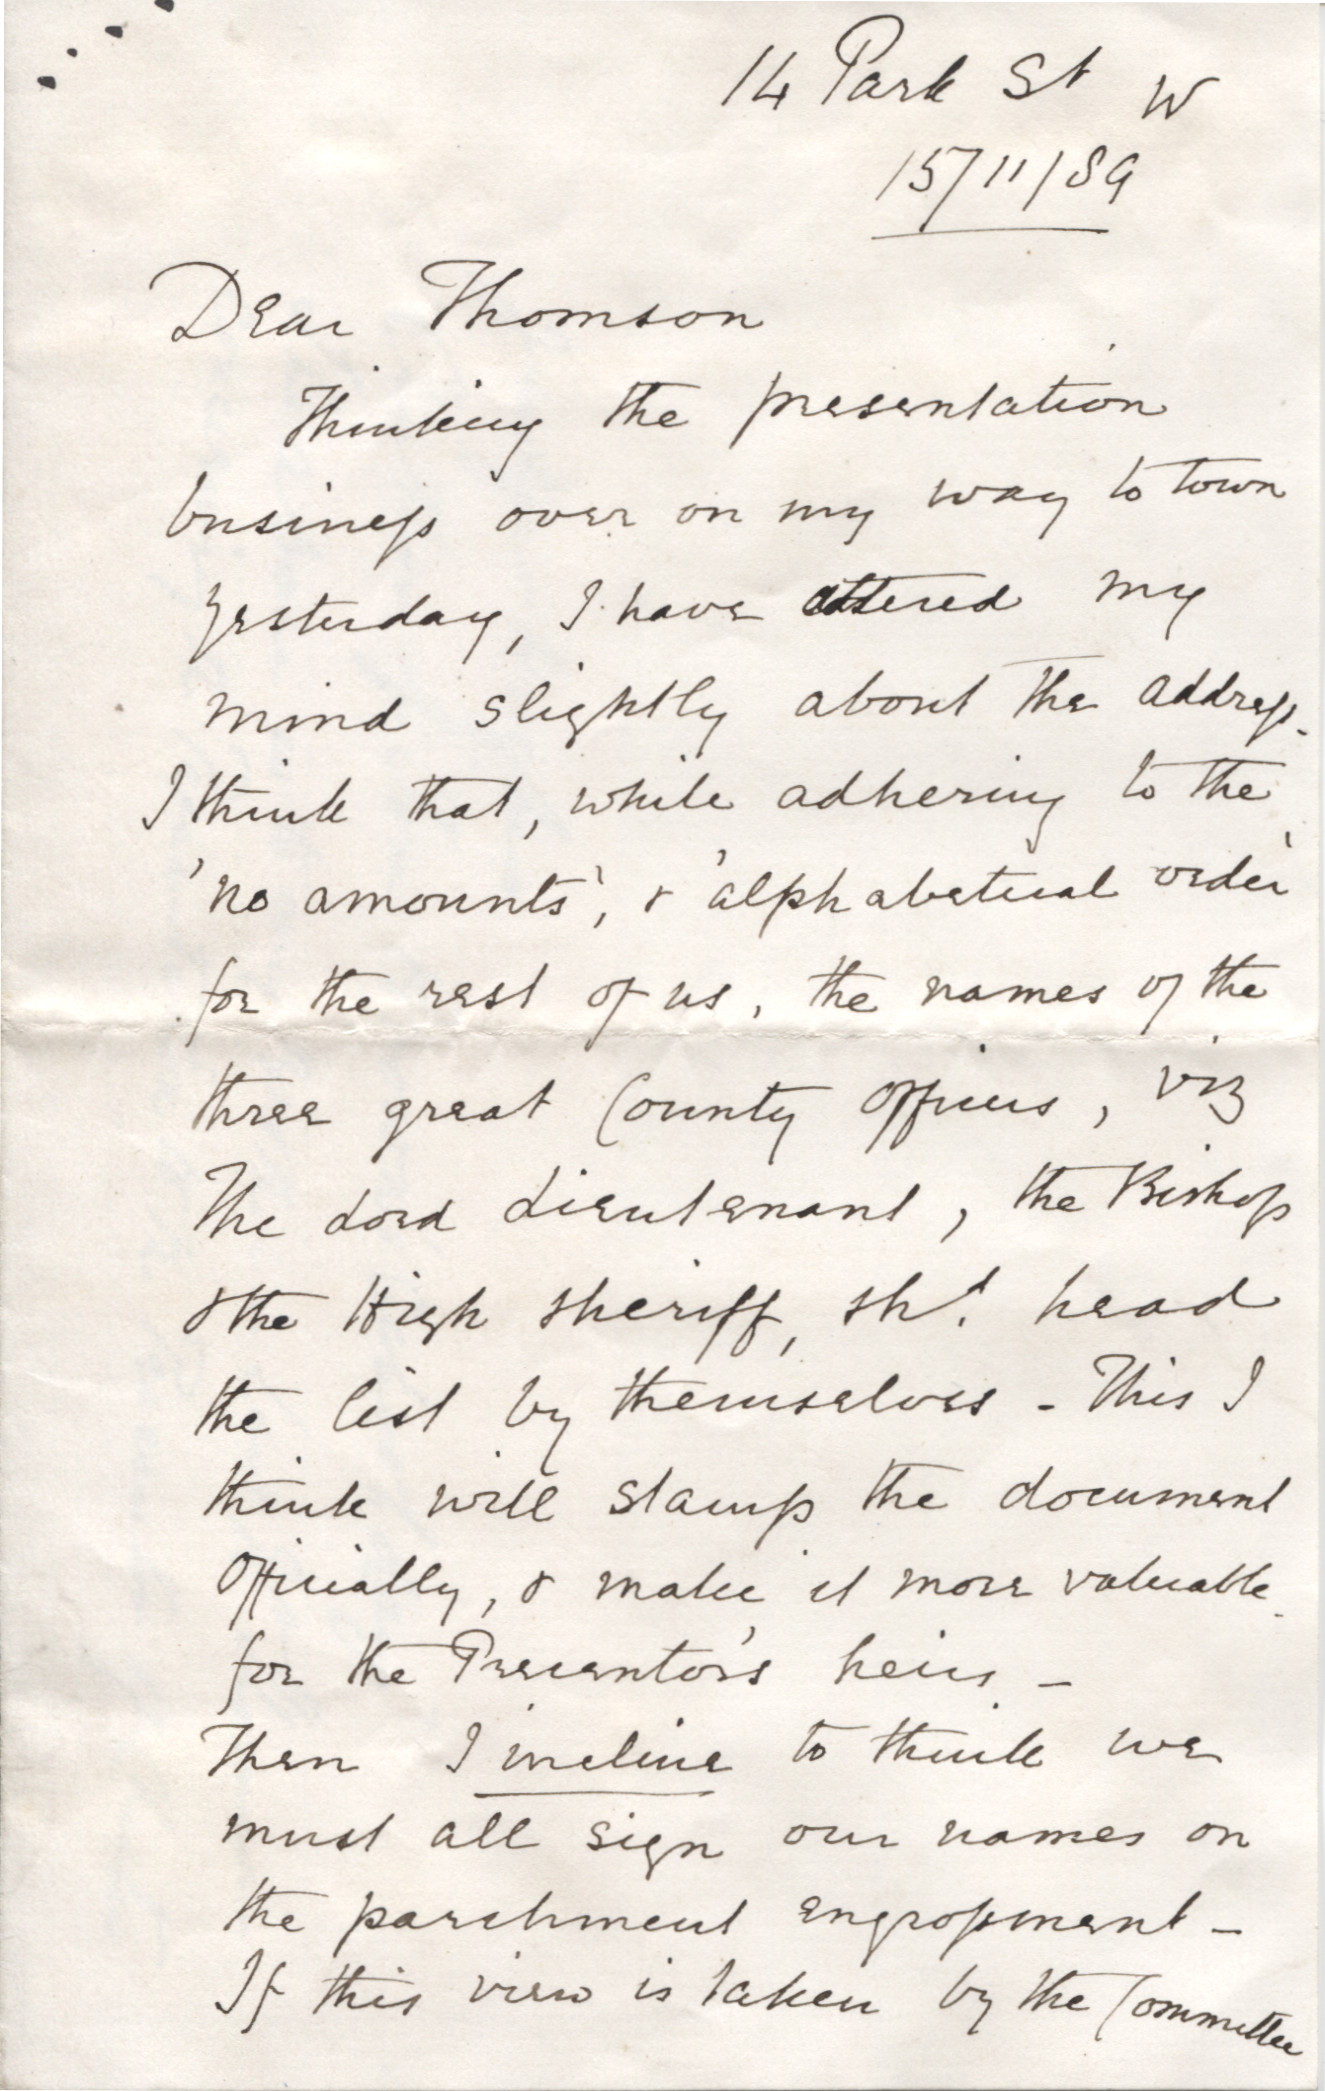 14 Park St W
15/11/89
Dear Thomson
Thinking the presentation
business over on my way to town
yesterday, I have altered my
mind slightly about the address.
I think that, while adhering to the
'no amounts', & 'alphabetical order'
for the rest of us, the names of the
three great County Officers, viz
The Lord Lieutenant, the Bishop
& the High Sheriff, shd. head
the list by themselves - This I
think will stamp the document
Officially, & make it more valuable
for the Precentor's heirs -
Then I incline to think we
must all sign our names on
the parchment engrossment -
If this view is taken by the Committee